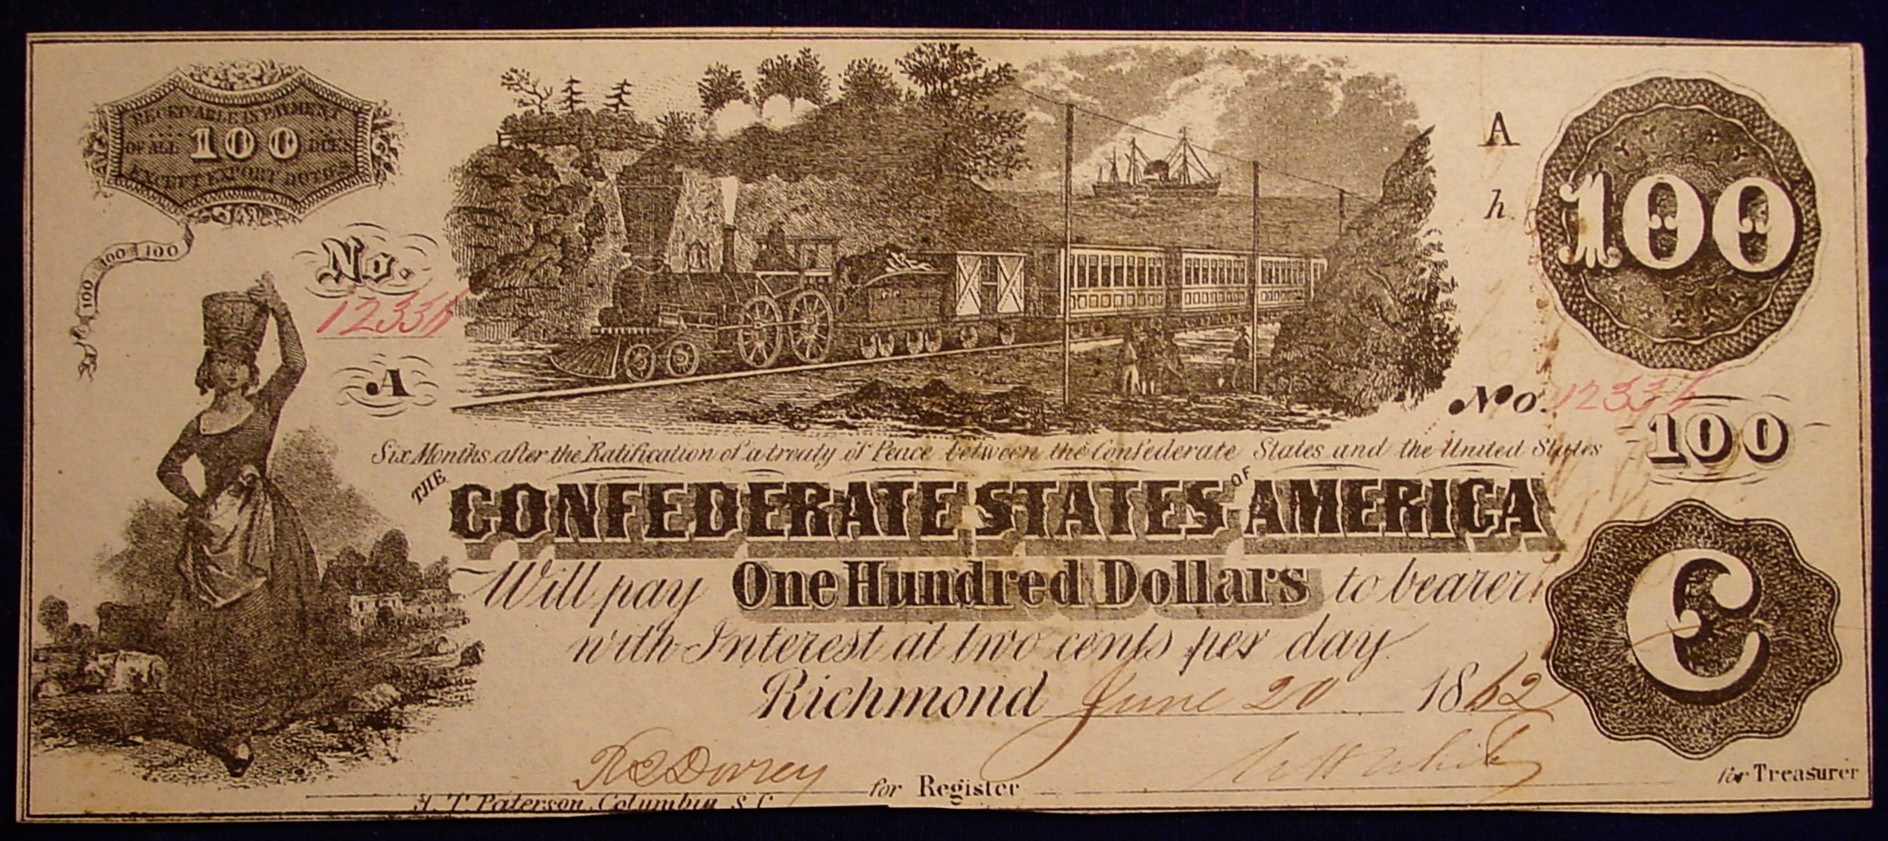 RECEIVABLE IN PAYMENT
OF ALL 100 DUES
EXCEPT EXPORT DUTIES
100 100 100
No.
12336
A
A
h
100
No. 12336
100
Six Months after the Ratification of a treaty of Peace between the Confederate States and the United States
THE CONFEDERATE STATES OF AMERICA
Will pay One Hundred Dollars to bearer
with Interest at two cents per day.
Richmond June 20 1862
C
for Register
for Treasurer
J. T. Paterson, Columbia, S.C.